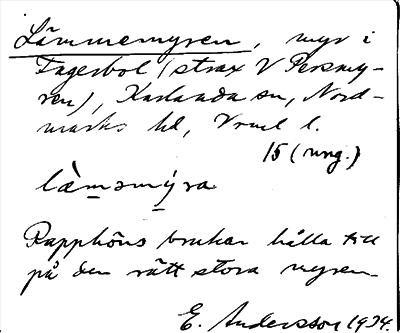 Lämmemyren, myr i
Fagerbol (strax V Persmy-
ren), Karlanda sn, Nord-
marks hd, Vrml l.
15 (ung.)
lä̀mǝmýra
Rapphöns brukar hålla till
på den rätt stora myren
E. Andersson 1934.